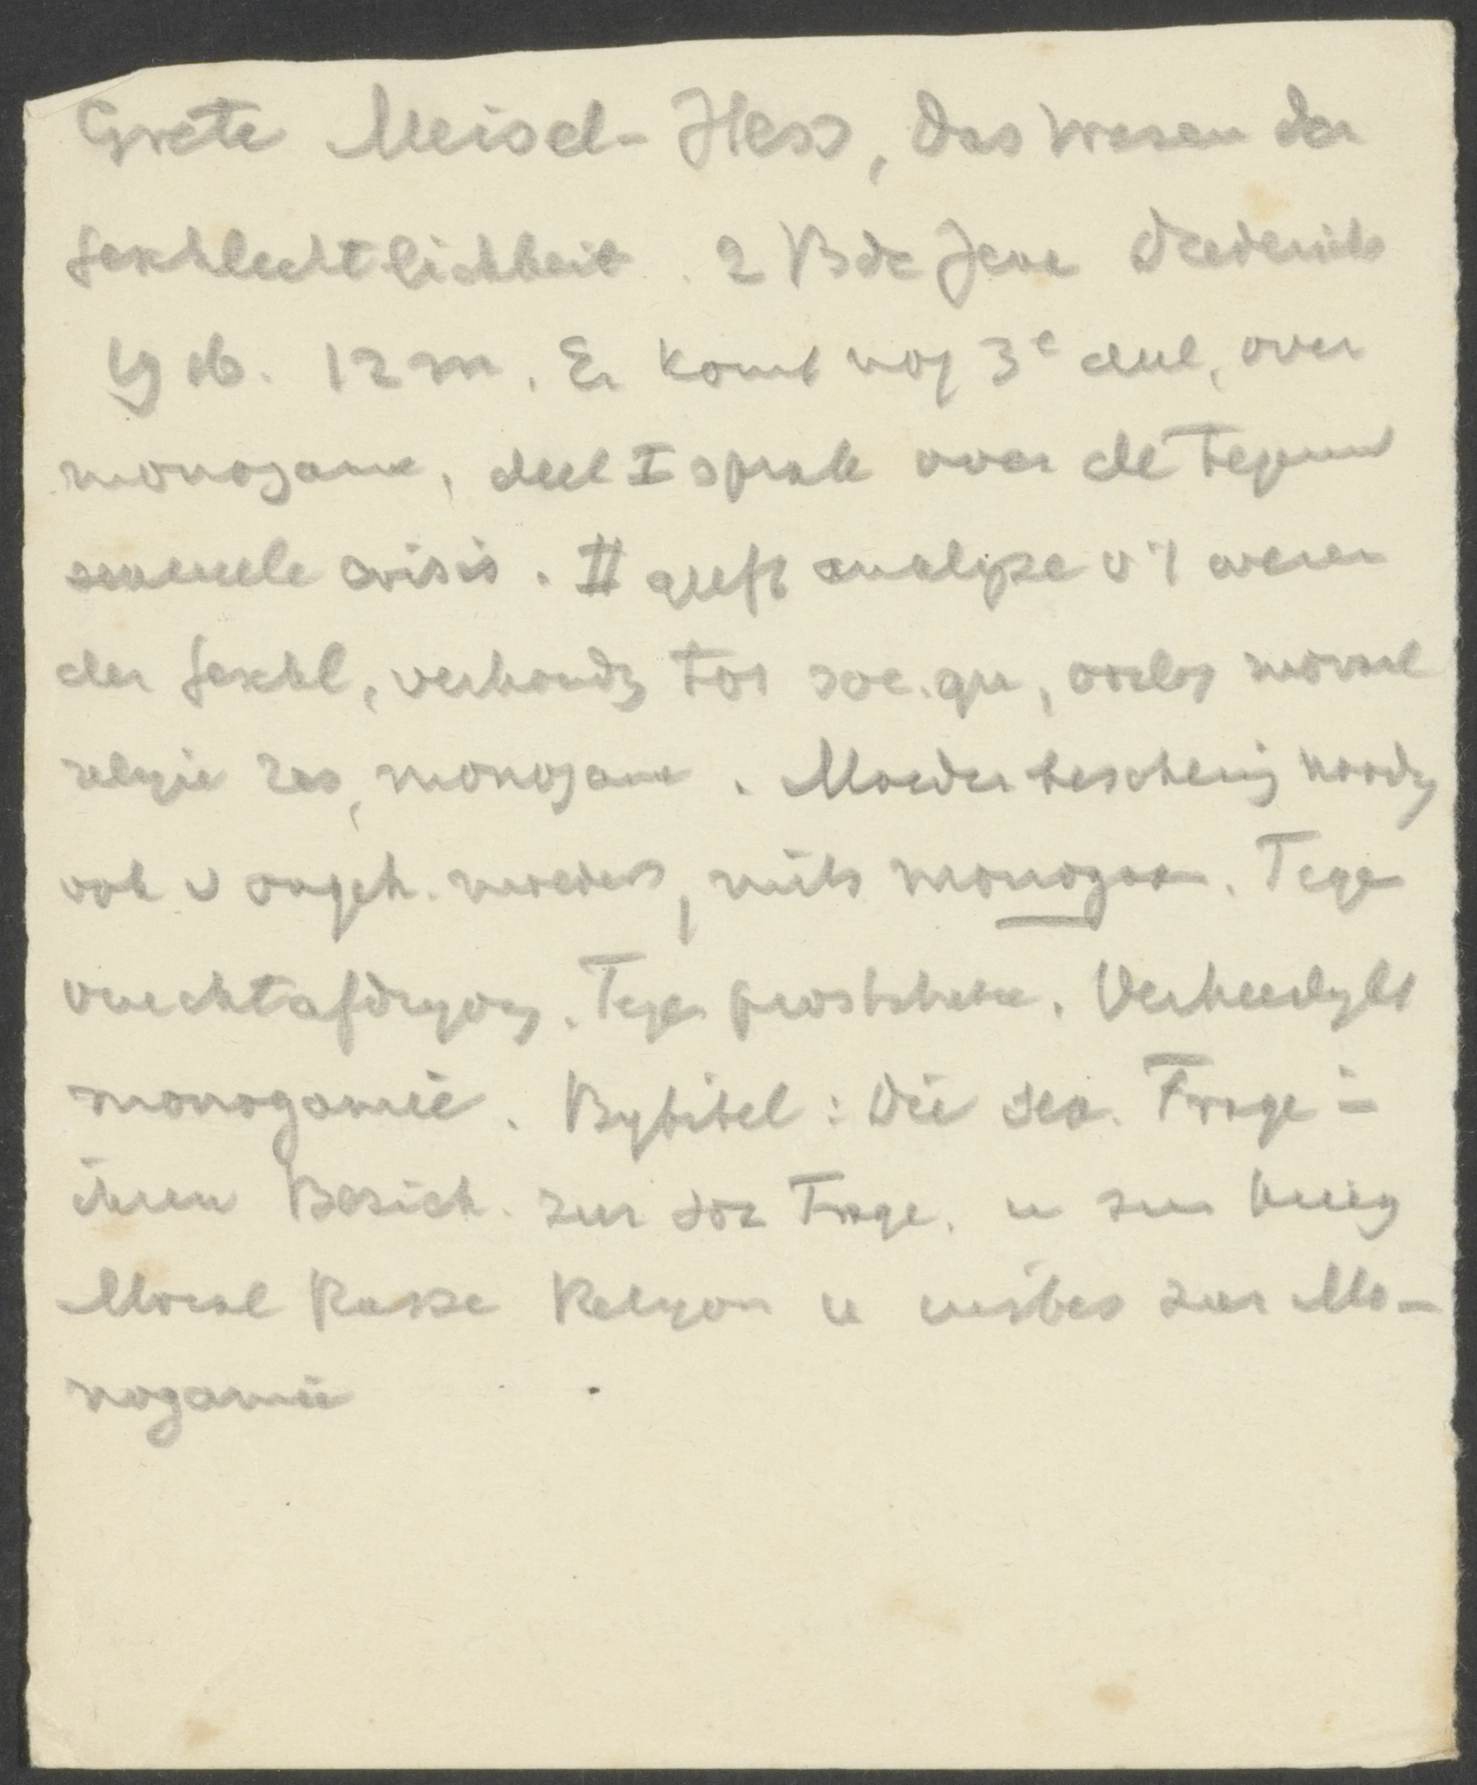 Grete Meisel-Hess, Das Wesen der
Geschlechtlichkeit. 2 Bde Jena Diederichs
12 m. Er komt nog 3e deel, over
monogamie, deel I sprak over de tegenw
sexueele crisis. II geeft analyse v 't wezen
der Geschl, verhoudg tot soc. qu, oorlog moraal
religie ras, monogamie. Moederbescherming noodig
ook v ongeh. moeders, mits monogaam. Tegen
vruchtafdrijving. Tegen prostitutie. Verheerlijkt
monogamie. Bytitel: Die sex. Frage in
ihren Bezieh. zur soz Frage. u zum Krieg
Moral Rasse Religion u insbes zur Mo-
nogamie